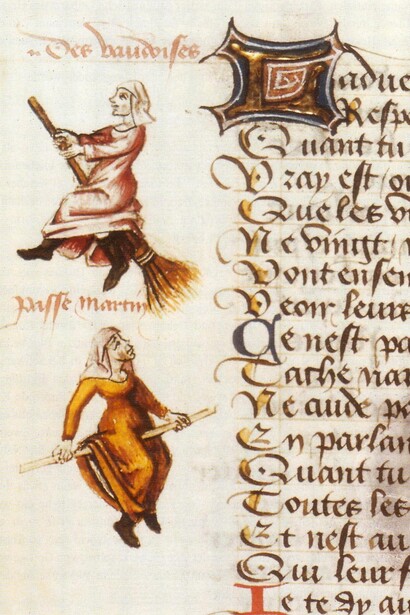 Des vaudoises
passe martin
Ladue
Respo
Quant tu
Vray est / ou
Que les vi
Ne vingt
Vont ensem
Veoir leurs
Ce nest pa
Ne cuide pa
En parlan
Quant tu
Toutes les
Et nest au
Qui leur
Je te dy au